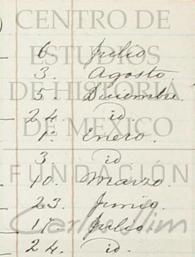 CENTRO DE
ESTUDIOS
DE HISTORIA
DE MÉXICO
FUNDACIÓN
Carlos Slim
6. Julio
3. Agosto
5. Diciembre
24. id
1º Enero.
3 id
10. Marzo.
23. Junio.
17. Julio.
24. id.